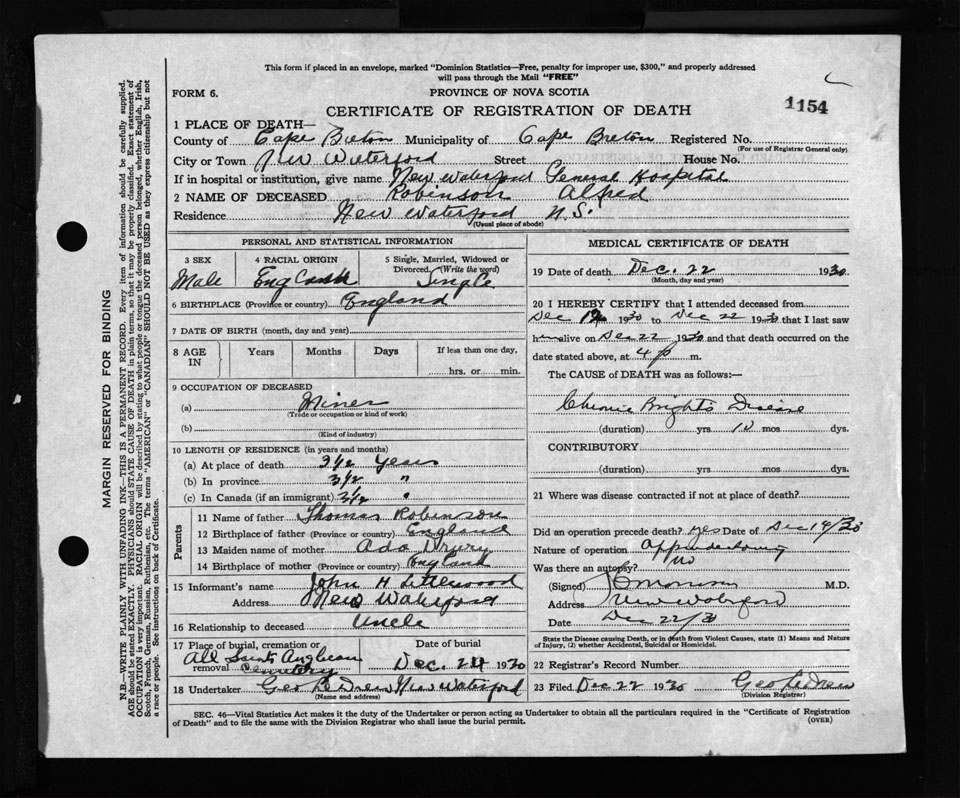 This form if placed in an envelope, marked "Dominion Statistics—Free, penalty for improper use, $300," and properly addressed
will pass through the Mail "FREE"
FORM 6. PROVINCE OF NOVA SCOTIA
CERTIFICATE OF REGISTRATION OF DEATH 1154
1 PLACE OF DEATH—
County of Cape Breton Municipality of Cape Breton Registered No.
(For use of Registrar General only)
City or Town New Waterford Street House No.
If in hospital or institution, give name New Waterford General Hospital
2 NAME OF DECEASED Robinson Alfred
Residence New Waterford N.S.
(Usual place of abode)
PERSONAL AND STATISTICAL INFORMATION
3 SEX 4 RACIAL ORIGIN 5 Single, Married, Widowed or
Divorced. (Write the word)
Male English Single
6 BIRTHPLACE (Province or country) England
7 DATE OF BIRTH (month, day and year)
8 AGE IN Years Months Days If less than one day,
hrs. or min.
9 OCCUPATION OF DECEASED
(a) Miner
(Trade or occupation or kind of work)
(b)
(Kind of industry)
10 LENGTH OF RESIDENCE (in years and months)
(a) At place of death 3 1/2 Years
(b) In province 3 1/2 "
(c) In Canada (if an immigrant) 3 1/2 "
Parents
11 Name of father Thomas Robinson
12 Birthplace of father (Province or country) England
13 Maiden name of mother Ada Drury
14 Birthplace of mother (Province or country) England
15 Informant's name John H Littlewood
Address New Waterford
16 Relationship to deceased Uncle
17 Place of burial, cremation or Date of burial
removal All Saints Anglican Cemetery Dec. 24 1930
18 Undertaker Geo LeDrew New Waterford
MEDICAL CERTIFICATE OF DEATH
19 Date of death Dec. 22 1930
(Month, day and year)
20 I HEREBY CERTIFY that I attended deceased from
Dec 1930 to Dec 22 1930 that I last saw
h alive on Dec 22 1930 and that death occurred on the
date stated above, at 4 p m.
The CAUSE of DEATH was as follows:—
Chronic Brights Disease
(duration) yrs 10 mos dys.
CONTRIBUTORY
(duration) yrs. mos. dys.
21 Where was disease contracted if not at place of death?
Did an operation precede death? yes Date of Dec 14/30
Nature of operation
Was there an autopsy? No
(Signed) M.D.
Address New Waterford
Date Dec 22/30
State the Disease causing Death, or in death from Violent Causes, state (1) Means and Nature
of Injury, (2) whether Accidental, Suicidal or Homicidal.
22 Registrar's Record Number
23 Filed Dec 22 1930 Geo LeDrew
(Division Registrar)
SEC. 46—Vital Statistics Act makes it the duty of the Undertaker or person acting as Undertaker to obtain all the particulars required in the "Certificate of Registration
of Death" and to file the same with the Division Registrar who shall issue the burial permit. (OVER)
MARGIN RESERVED FOR BINDING
N.B.—WRITE PLAINLY WITH UNFADING INK—THIS IS A PERMANENT RECORD. Every item of information should be carefully supplied.
AGE should be stated EXACTLY. PHYSICIANS should STATE CAUSE OF DEATH in plain terms, so that it may be properly classified. Exact statement of
OCCUPATION is very important. RACIAL ORIGIN will be described by stating to what people or tongue the deceased person belonged, whether English, Irish,
Scotch, French, German, Russian, Ruthenian, etc. The terms "AMERICAN" or "CANADIAN" SHOULD NOT BE USED as they express citizenship but not
a race or people. See instructions on back of Certificate.